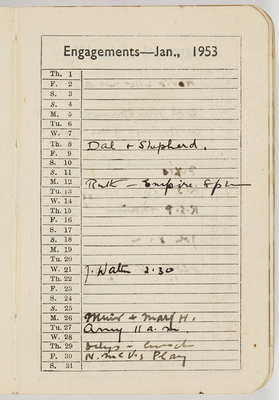 Engagements—Jan., 1953
Th. 1
F. 2
S. 3
S. 4
M. 5
Tu. 6
W. 7
Th. 8 Dal + Shepherd.
F. 9
S. 10
S. 11
M. 12 Ruth - Empire 8 pm
Tu. 13
W. 14
Th. 15
F. 16
S. 17
S. 18
M. 19
Tu. 20
W. 21 J. 2.30
Th. 22
F. 23
S. 24
S. 25
M. 26 Muir & Mary H.
Tu. 27 Army 11 a.m.
W. 28
Th. 29
F. 30 Play
S. 31